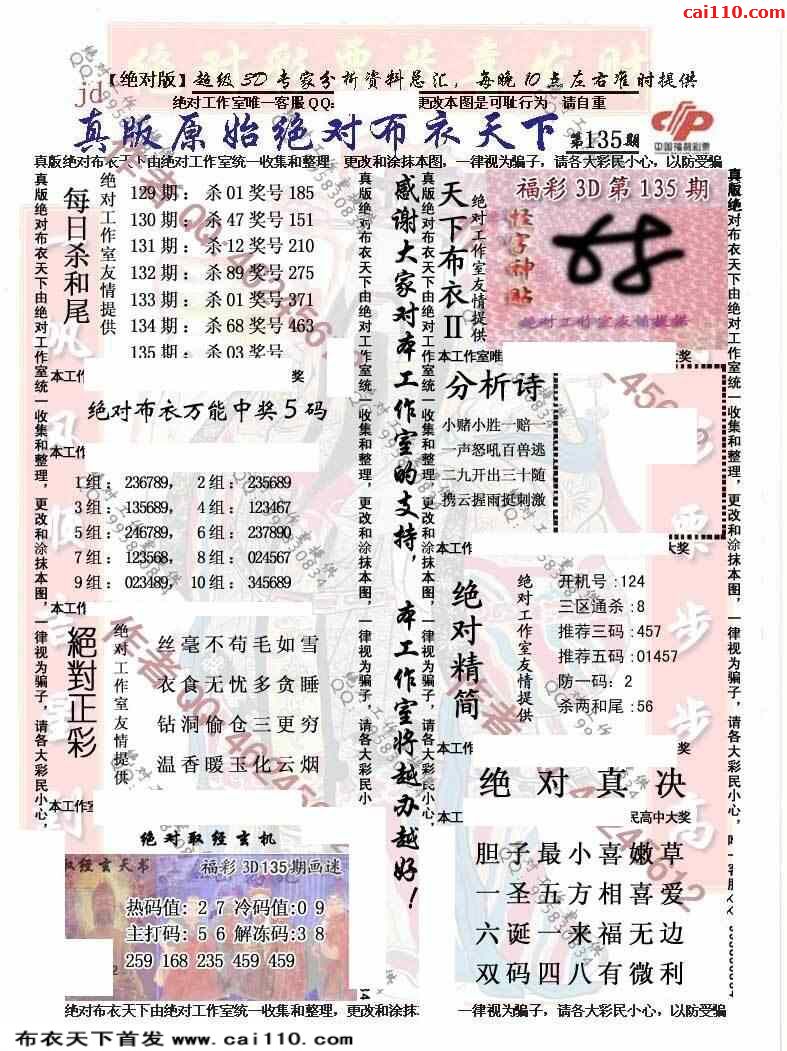 cai110.com
绝对彩票
【绝对版】超级3D专家分析资料总汇，每晚10点左右准时提供
jd
绝对工作室唯一客服QQ: 更改本图是可耻行为 请自重
真版原始绝对布衣天下 第135期
中国福利彩票
真版绝对布衣天下由绝对工作室统一收集和整理 更改和涂抹本图，一律视为骗子，请各大彩民小心，以防受骗
真版绝对布衣天下由绝对工作室统一收集和整理，更改和涂抹本图，一律视为骗子，请各大彩民小心，
每日杀和尾
绝对工作室友情提供
129期：杀01奖号185
130期：杀47奖号151
131期：杀12奖号210
132期：杀89奖号275
133期：杀01奖号371
134期：杀68奖号463
135期：杀03奖号
本工作 奖
绝对布衣万能中奖5码
本工作
1组：236789，2组：235689
3组：135689，4组：123467
5组：246789，6组：237890
7组：123568，8组：024567
9组：023489，10组：345689
本工作
絕對正彩
绝对工作室友情提供
丝毫不苟毛如雪
衣食无忧多贪睡
钻洞偷仓三更穷
温香暖玉化云烟
本工作室
绝对取经玄机
取经玄天书 福彩3D135期画迷
热码值：27冷码值:09
主打码：56解冻码:38
259 168 235 459 459
真版绝对布衣天下由绝对工作室统一收集和整理，更改和涂抹本图，一律视为骗子，请各大彩民小
感谢大家对本工作室的支持，本工作室将越办越好！
真版绝对布衣天下由绝对工作室统一收集和整理，更改和涂抹本图，一律视为骗子，请各大彩民小心，
天下布衣II
绝对工作室友情提供
福彩3D第135期
怪字神贴
绝对工作室友情提供
本工作室唯 大奖
分析诗
小赌小胜一赔一
一声怒吼百兽逃
二九开出三十随
携云握雨挺刺激
本工作 大奖
绝对精简
绝对工作室友情提供
开机号:124
三区通杀:8
推荐三码:457
推荐五码:01457
防一码：2
杀两和尾:56
本工作 奖
绝对真决
本工作 民高中大奖
胆子最小喜嫩草
一圣五方相喜爱
六诞一来福无边
双码四八有微利
真版绝对布衣天下由绝对工作室统一收集和整理，更改和涂抹本图，一律视为骗子，请各大彩民小心，
绝对布衣天下由绝对工作室统一收集和整理，更改和涂抹本 一律视为骗子，请各大彩民小心，以防受骗
作者QQ:462456612
布衣天下首发 www.cai110.com